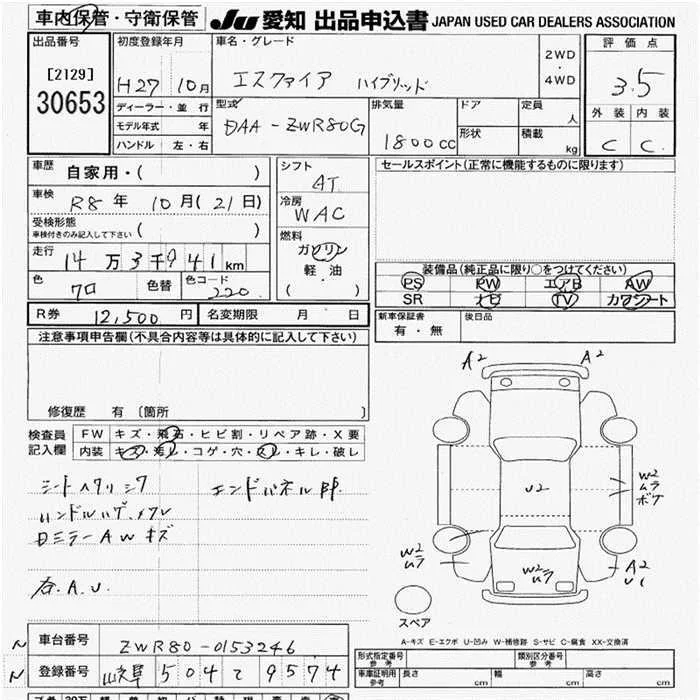 車内保管・守衛保管 JU 愛知 出品申込書 JAPAN USED CAR DEALERS ASSOCIATION
出品番号 初度登録年月 車名・グレード 評価点
[2129] H27 10月 エスクァイア ハイブリッド 2WD ・ 4WD 3.5
30653 ディーラー・並行 型式 排気量 ドア 定員 人 外装 内装
モデル年式 年 DAA-ZWR80G 1800cc 形状 積載 kg C C
ハンドル 左・右
車歴 自家用・( ) シフト AT セールスポイント(正常に機能するものに限ります)
車検 R8年 10月(21日) 冷房 WAC
受検形態 車検付きのみ記入して下さい ( ) 燃料
走行 14万3千941km ガソリン
色 クロ 色替 色コード 220 軽・油 ( ・ )
装備品(純正品に限り○をつけてください)
PS PW エアB AW
SR ナビ TV カワシート
R券 12,500円 名変期限 月 日 新車保証書 有・無 後日品
注意事項申告欄(不具合内容等は具体的に記入して下さい)
修復歴 有〔箇所 〕
検査員記入欄 FW キズ・飛石・ヒビ割・リペア跡・X要
内装 キズ・汚レ・コゲ・穴・スレ・キレ・破レ
シートヘタリシワ エンドパネル
ハンドルハゲ
ミラーAWキズ
各.A.U.
A2 A2
U2
W2 ムラ ボケ
W2 ムラ
W2 ムラ
A2 U1
スペア
A-キズ E-エクボ U-凹み W-補修跡 S-サビ C-腐食 XX-交換済
N 車台番号 ZWR80-0153246
形式指定番号 参考 類別区分番号 参考
N 登録番号 504 て 9574
車庫証明用 参考 長さ cm 幅 cm 高さ cm